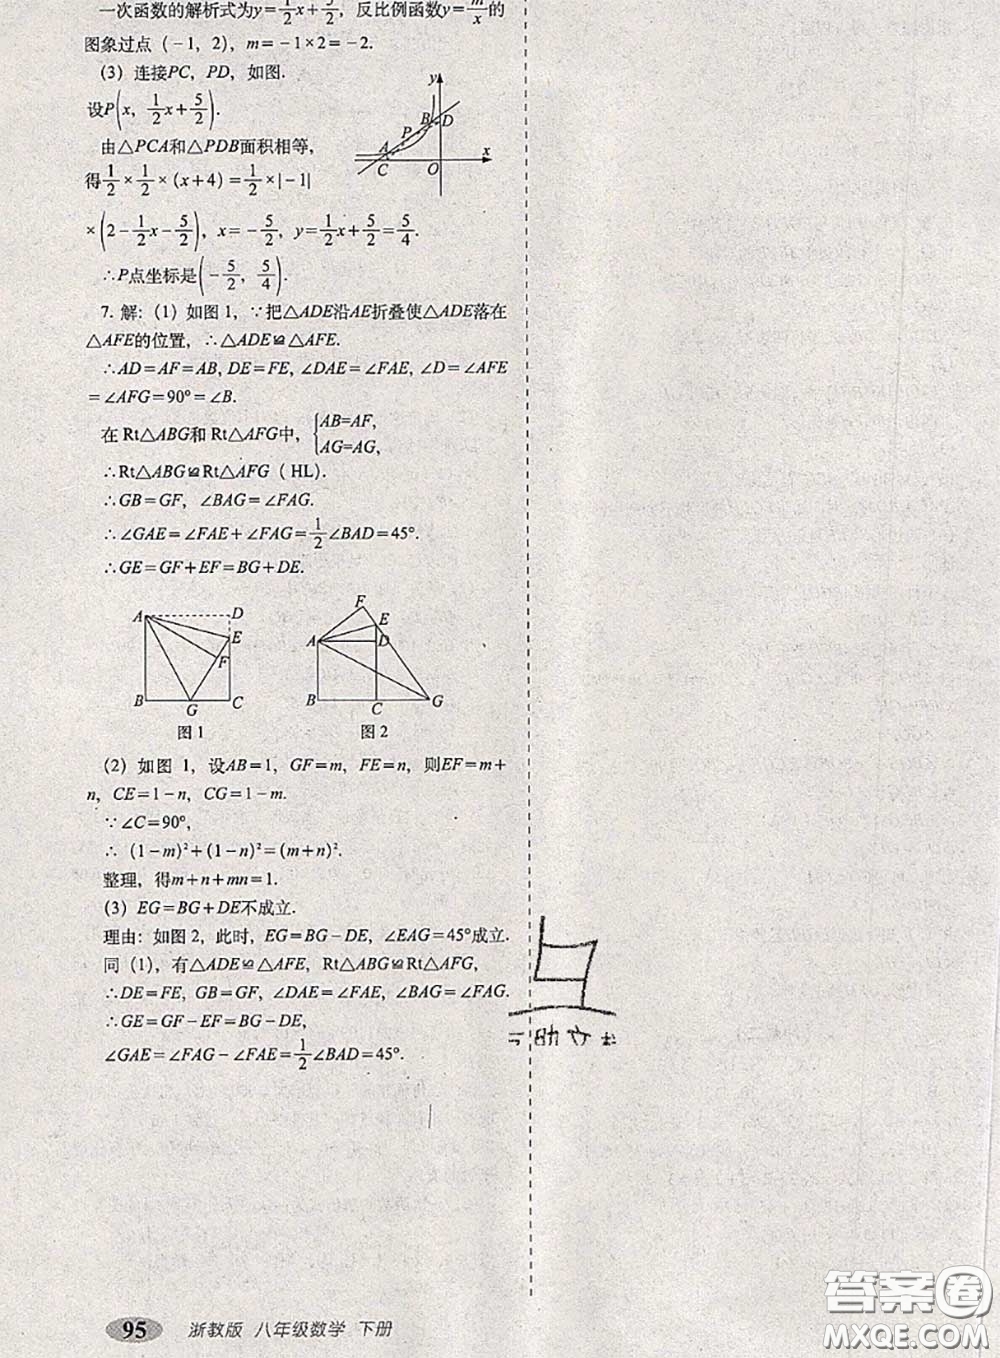 一次函数的解析式为y=1/2x+5/2, 反比例函数y=m/x的
图象过点 (-1, 2), m=-1×2=-2.
(3) 连接PC, PD, 如图.
设P(x, 1/2x+5/2).
由△PCA和△PDB面积相等,
得1/2×1/2×(x+4)=1/2×|-1|
×(2-1/2x-5/2), x=-5/2, y=1/2x+5/2=5/4.
∴P点坐标是(-5/2, 5/4).
y
B
D
P
A
x
C
O
7. 解: (1) 如图 1, ∵把△ADE沿AE折叠使△ADE落在
△AFE的位置, ∴△ADE≌△AFE.
∴AD=AF=AB, DE=FE, ∠DAE=∠FAE, ∠D=∠AFE
=∠AFG=90°=∠B.
在 Rt△ABG和 Rt△AFG中, {AB=AF,
AG=AG,
∴Rt△ABG≌Rt△AFG ( HL).
∴GB=GF, ∠BAG=∠FAG.
∴∠GAE=∠FAE+∠FAG=1/2∠BAD=45°.
∴GE=GF+EF=BG+DE.
A D E F B G C
图 1
F E A D B C G
图 2
(2) 如图 1, 设AB=1, GF=m, FE=n, 则EF=m+
n, CE=1-n, CG=1-m.
∵∠C=90°,
∴ (1-m)²+(1-n)²=(m+n)².
整理, 得m+n+mn=1.
(3) EG=BG+DE不成立.
理由: 如图 2, 此时, EG=BG-DE, ∠EAG=45°成立.
同 (1), 有△ADE≌△AFE, Rt△ABG≌Rt△AFG,
∴DE=FE, GB=GF, ∠DAE=∠FAE, ∠BAG=∠FAG.
∴GE=GF-EF=BG-DE,
∠GAE=∠FAG-∠FAE=1/2∠BAD=45°.
95 浙教版 八年级数学 下册
答案圈
MXQE.COM